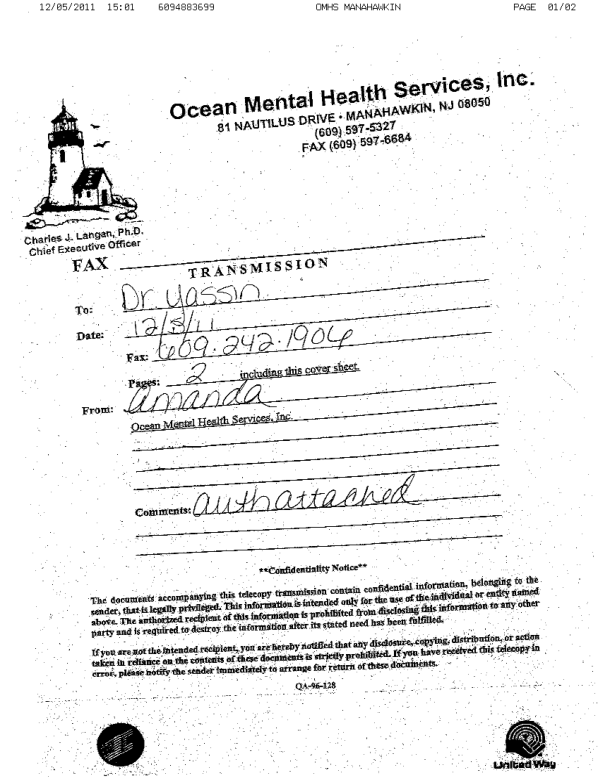 12/05/2011 15:01 6094883699 OMHS MANAHAWKIN PAGE 01/02
Ocean Mental Health Services, Inc.
81 NAUTILUS DRIVE • MANAHAWKIN, NJ 08050
(609) 597-5327
FAX (609) 597-6684
Charles J. Langan, Ph.D.
Chief Executive Officer
FAX TRANSMISSION
To: Dr. Yassin
Date: 12/5/11
Fax: 609.242.1906
Pages: 2 including this cover sheet.
From: Amanda
Ocean Mental Health Services, Inc.
Comments: auth attached
**Confidentiality Notice**
The documents accompanying this telecopy transmission contain confidential information, belonging to the
sender, that is legally privileged. This information is intended only for the use of the individual or entity named
above. The authorized recipient of this information is prohibited from disclosing this information to any other
party and is required to destroy the information after its stated need has been fulfilled.
If you are not the intended recipient, you are hereby notified that any disclosure, copying, distribution, or action
taken in reliance on the contents of these documents is strictly prohibited. If you have received this telecopy in
error, please notify the sender immediately to arrange for return of these documents.
QA-96-128
United Way